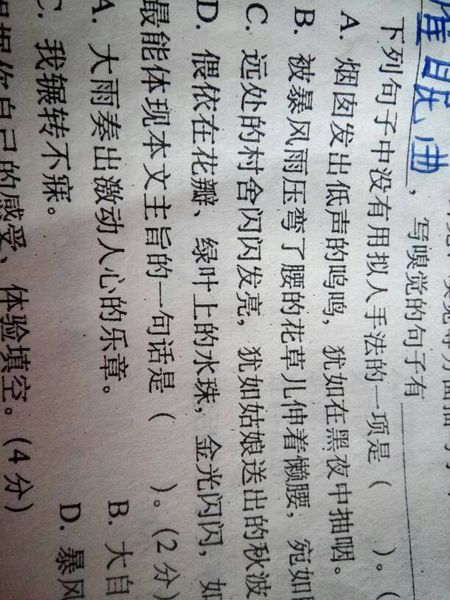 催眠曲，写嗅觉的句子有
下列句子中没有用拟人手法的一项是（ ）。（
A. 烟囱发出低声的呜鸣，犹如在黑夜中抽咽。
B. 被暴风雨压弯了腰的花草儿伸着懒腰，宛如
C. 远处的村舍闪闪发亮，犹如姑娘送出的秋波
D. 偎依在花瓣、绿叶上的水珠，金光闪闪，如
最能体现本文主旨的一句话是（ ）。（2分）
A. 大雨奏出激动人心的乐章。 B. 大自
C. 我辗转不寐。 D. 暴风
你自己的感受、体验填空。（4分）